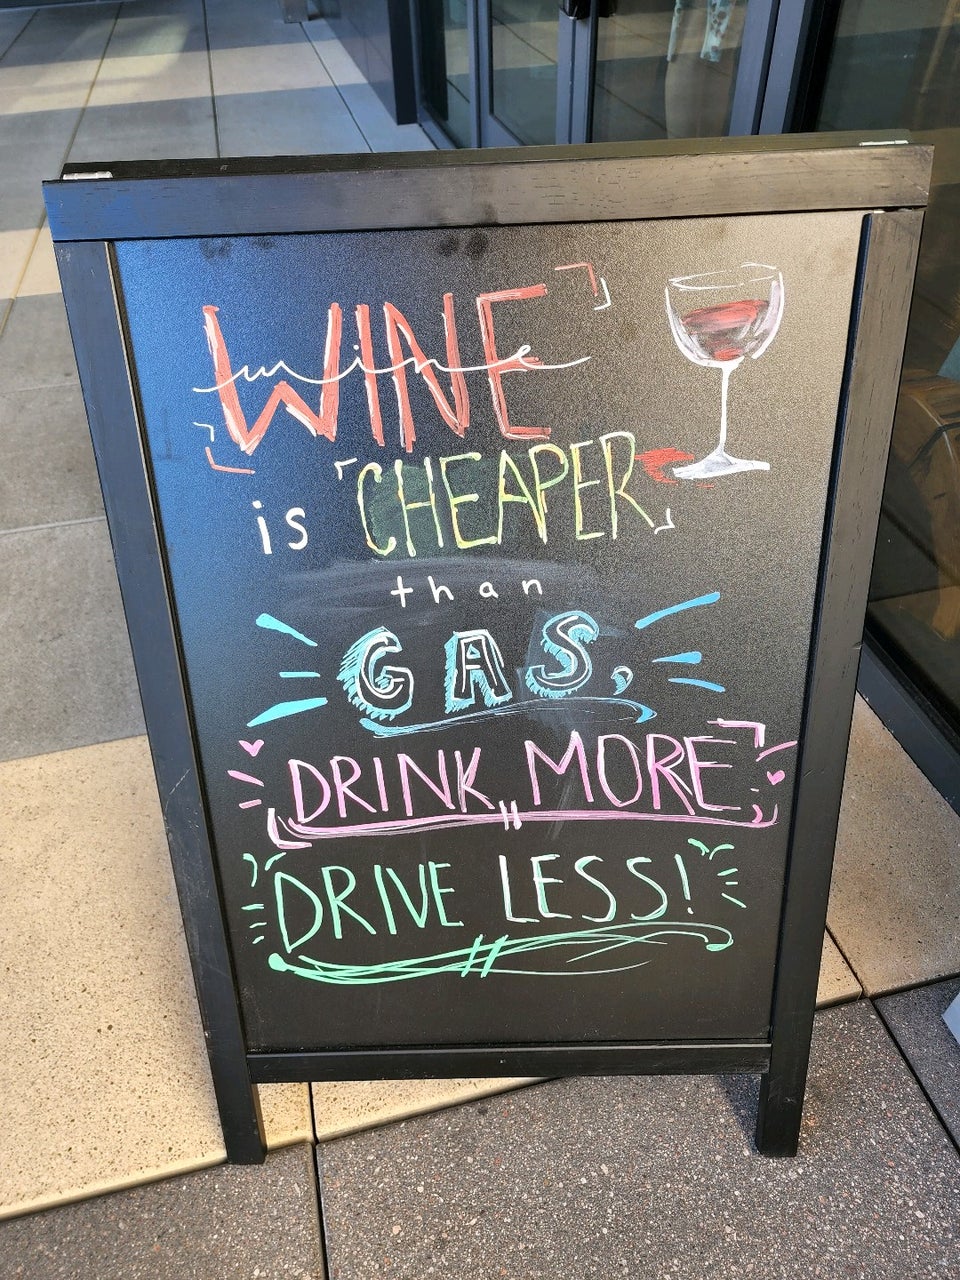 WINE
wine
is CHEAPER
than
GAS,
DRINK MORE
DRIVE LESS!